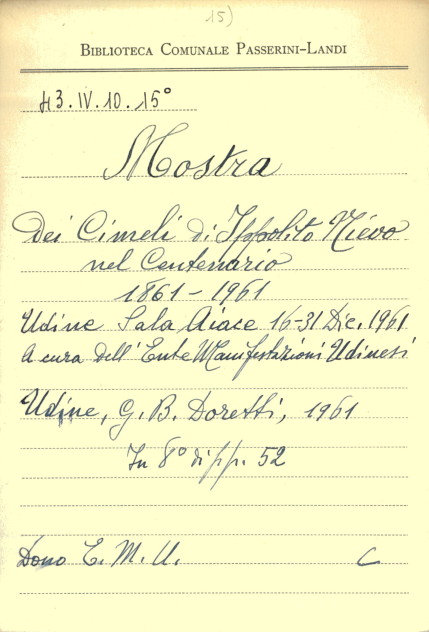 15)
BIBLIOTECA COMUNALE PASSERINI-LANDI
43.IV.10.15°
Mostra
Dei Cimeli di Ippolito Nievo
nel Centenario
1861-1961
Udine Sala Aiace 16-31 Dic. 1961
A cura dell'Ente Manifestazioni Udinesi
Udine, G. B. Doretti, 1961
In 8° di pp. 52
Dono E. M. U. C